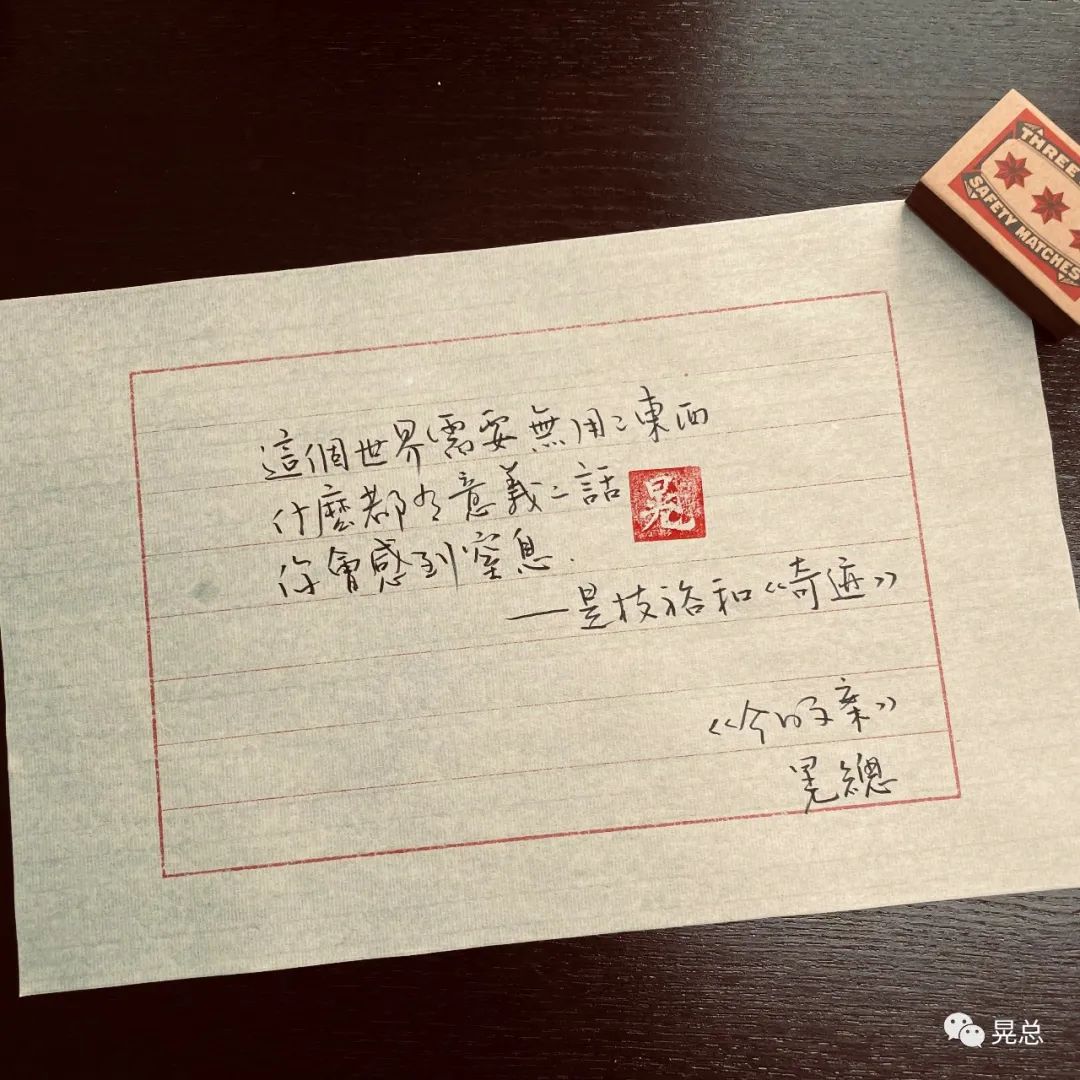 這個世界需要無用之東西
什麼都有意義之話
你會感到窒息.
晃
——是枝裕和《奇迹》
《今日文案》
晃總
THREE
SAFETY MATCHES
晃总